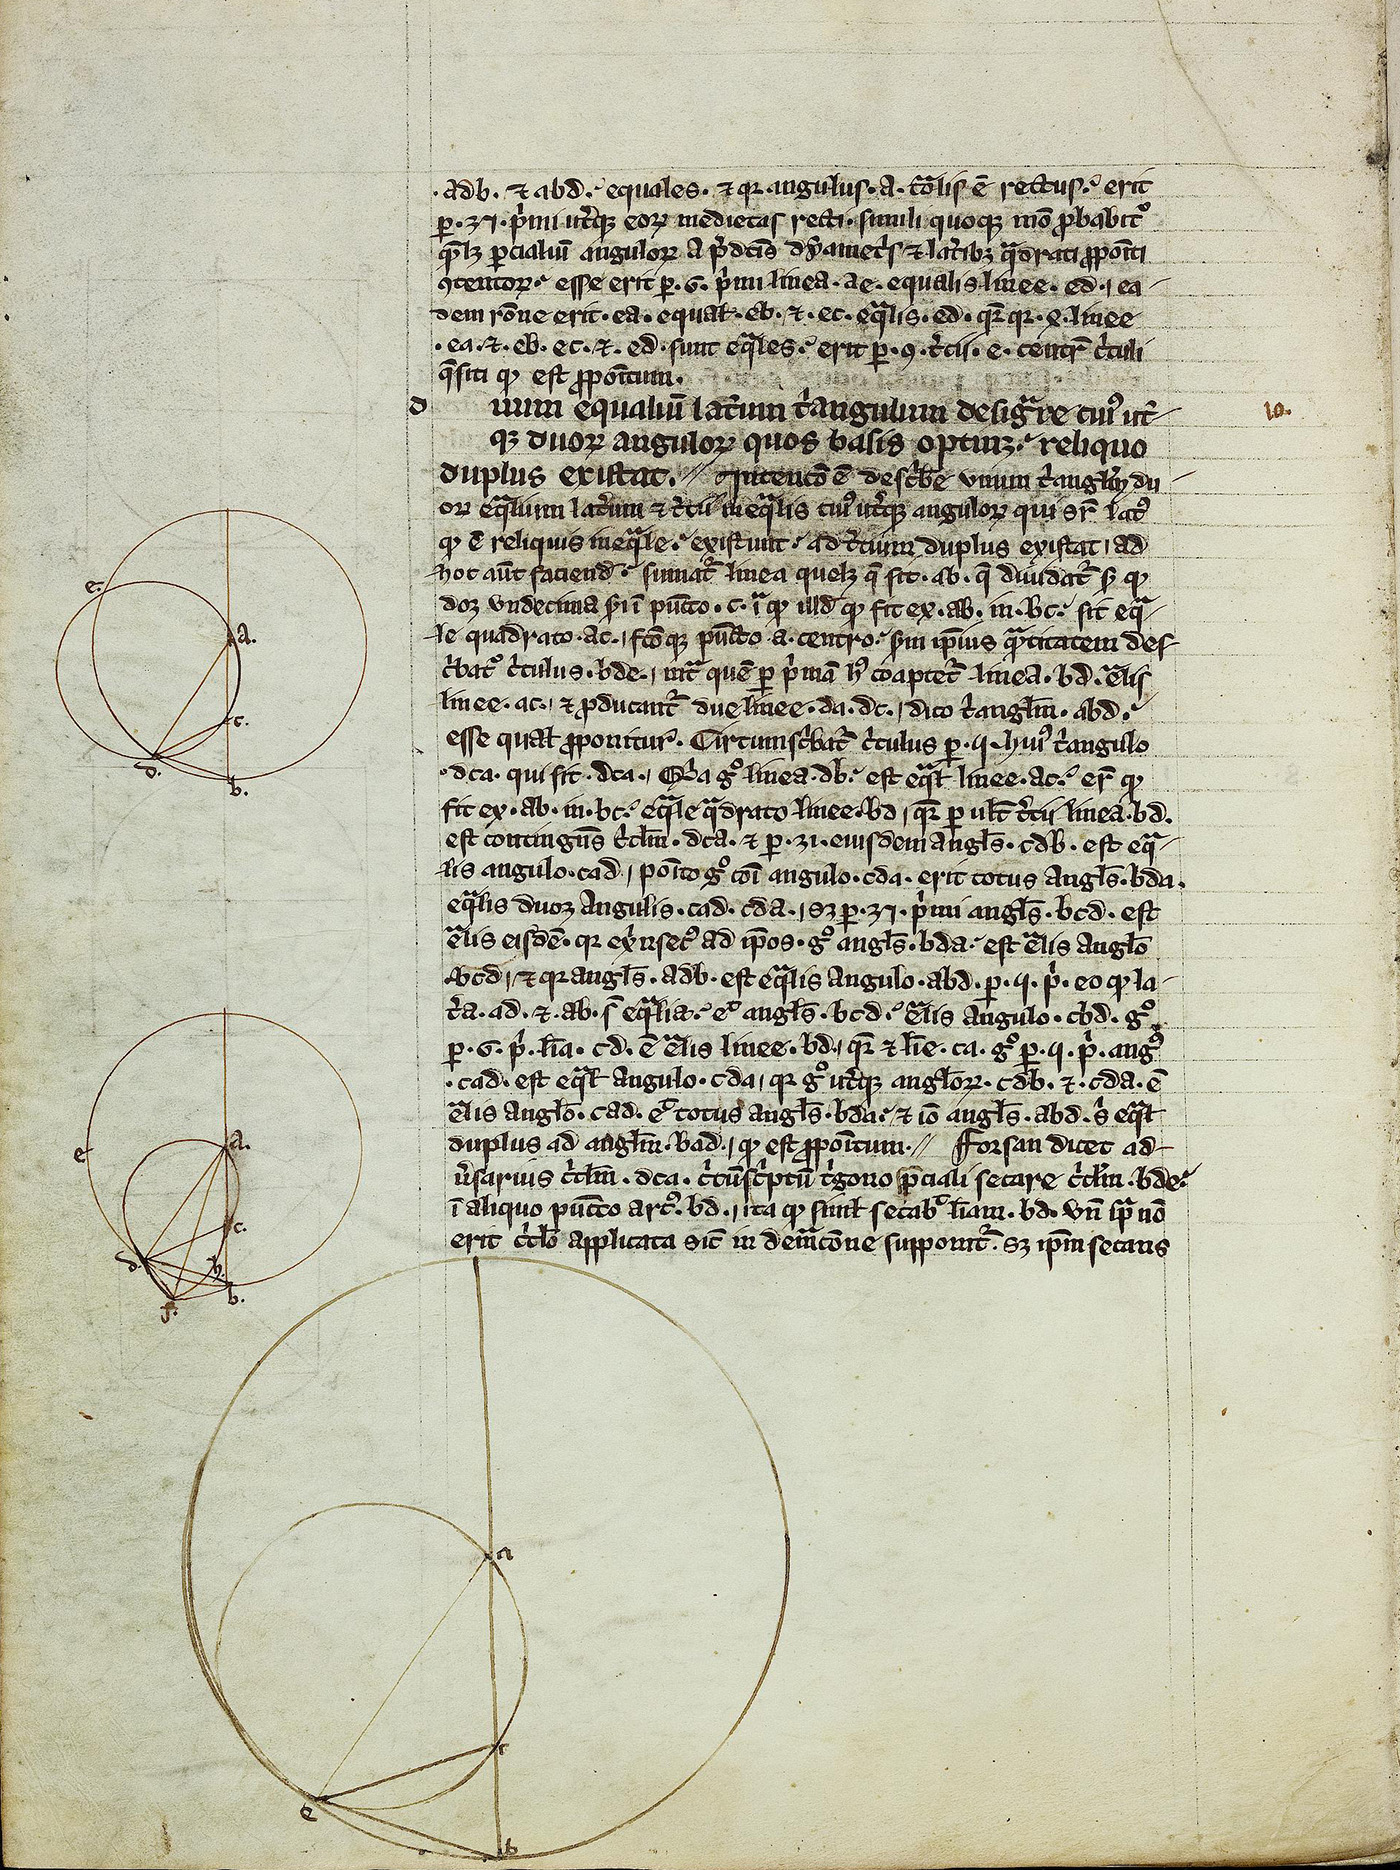 .adb. ⁊ abd. equales. ⁊ qꝛ angulus. a. tōlis ē rectus. erit
ꝑ. 32. p̄mi utͥqꝫ eoꝝ medietas recti. simili quoqꝫ mō ꝓbabitᷣ
qͣlꝫ ꝑcialiū anguloꝝ a p̄dc̄is dẏametͥs ⁊ latͥibꝫ qͣdrati ꝓpōiti
ꝯtentoꝝ. esse erit ꝑ. 6. p̄mi linea. ae. equalis linee. ed. ea
dem rōne erit. ea. equaƚ. eb. ⁊. ec. eqͣlis. ed. qr̄ qꝛ. 4. linee
.ea. ⁊. eb. ec. ⁊. ed. sunt eqͣles. erit ꝑ. 9. t̄cii. e. centr̄ c̄culi
q̄siti qđ est ꝓpōitum.
d uum equaliū latͥum tͥangulum desigͣre cuiꝰ utͥ-
qꝫ duoꝝ anguloꝝ quos basis optinꝫ. reliquo
duplus existat. // Intencō ē descͥbe vnum tͥangl̄m du
oꝝ eqͣlium latͥum ⁊ t̄cii ineqͣlis cuiꝰ utͥqꝫ anguloꝝ qui sr̄ latꝰ
qđ ē reliquis ineqͣle. existunt. ad t̄cium duplus existat, ad
hoc aūt faciendꝰ. sumatᷣ linea quelꝫ q̄ sit. ab. q̄ diuidatᷣ s̄ qđ
docꝫ vndecima s̄i ī puncto. c. ī qđ illđ qđ fit ex. ab. in. bc. sit eqͣ-
le quadrato. ac. fc̄oqꝫ puncto a. centro. s̄m ip̄ius qͣntitatem des
cͥbatᷣ cͥculus. bde. intͣ quē ꝑ p̄mā hꝰ coaptetᷣ linea. bd. eq̄lis
linee. ac. ⁊ ꝓducantᷣ due linee. da. dc. dico tͥangl̄m. abd.
esse qualƚ ꝓponiturᷣ. Circumscͥbatᷣ cͥculus ꝑ. 5. huiꝰ tͥangulo
.dca. qui sit. dca. Quia gͦ linea. db. est eqͣƚ linee. ac. er̄ qđ
fit ex. ab. in. bc. eqͣle qͣdrato linee. bd, qr̄ ꝑ ulƚ t̄cii linea. bd.
est contingēs cͥcl̄m. dca. ⁊ ꝑ. 31. eiusdem angl̄s. cdb. est eqͣ-
lis angulo. cad, pōito gͦ cōi angulo. cda. erit totus angl̄s. bda.
eqͣlis duoꝫ angulis. cad. cda. sꝫ ꝑ. 32. p̄mi angl̄s. bcd. est
eq̄lis eisdē. qꝛ ext̄nsecꝰ ad ip̄os. gͦ angl̄s. bda. est eq̄lis angl̄o
bcd, ⁊ qꝛ angl̄s. adb. est eqͣlis angulo. abd. ꝑ. 5. p̄. eo qđ la-
tͥa. ad. ⁊. ab. s̄ eqͣlia. eͬ angl̄s. bcd. eq̄lis angulo. cbd. gͦ
ꝑ. 6. p̄. lī̄a. cd. ē eq̄lis linee. bd. qr̄ ⁊ līe. ca. gͦ ꝑ. 5. p̄. angͦ
.cad. est eqͣƚ angulo. cda, qꝛ gͦ utͥqꝫ angl̄oꝝ. cdb. ⁊. cda. ē
eq̄lis angl̄o. cad. eͬ totus angl̄s. bda. ⁊ iō angl̄s. abd. s̄ eqͣƚ
duplus ad angl̄m. bad, qđ est ꝓpōitum. // Forsan dicet ad-
ūsarius cͥcl̄m. dca. cͥcūscͥptū tͥgono ꝑciali secare cͥcl̄m. bde.
ī aliquo puncto arcꝰ. bd. ita qđ simƚ secabᷣ lī̄am. bd. vn̄ ip̄a nō
erit cͥcl̄o applicata sic̄ in dem̄cōne supponitᷣ. sꝫ ip̄m secans
10.
e.
a.
c.
d.
b.
e
a.
c.
d.
h.
b.
f.
a
c
e
b